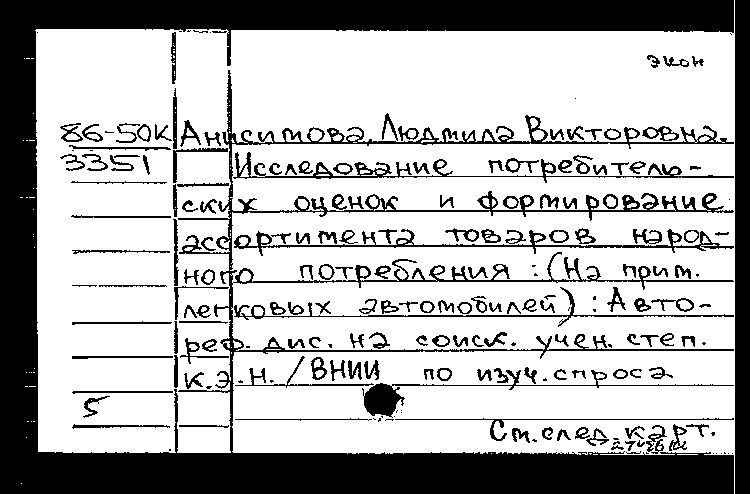 экон
86-50К Анисимова, Людмила Викторовна.
3351 Исследование потребитель-
ских оценок и формирование
ассортимента товаров народ-
ного потребления : (На прим.
легковых автомобилей) : Авто-
реф. дис. на соиск. учен. степ.
к.э.н. / ВНИИ по изуч. спроса
5
См. след. карт.